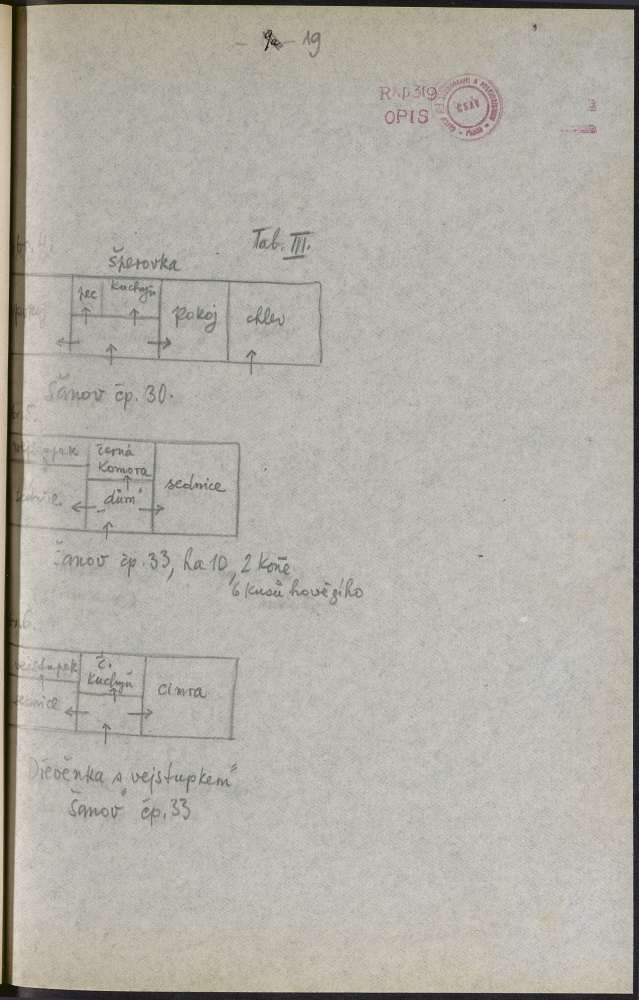 19
Rkp 319
OPIS
Tab. III.
špерovka
pec kuchyň
pokoj pokoj chlev
Šanov čp. 30.
vejstupek černá
komora
sednice „dům“ sednice
Šanov čp. 33, ha 10, 2 koně
6 kusů hovězího
vejstupek č.
kuchyň
sednice cimra
„Dřevěnka s vejstupkem“
Šanov čp. 33